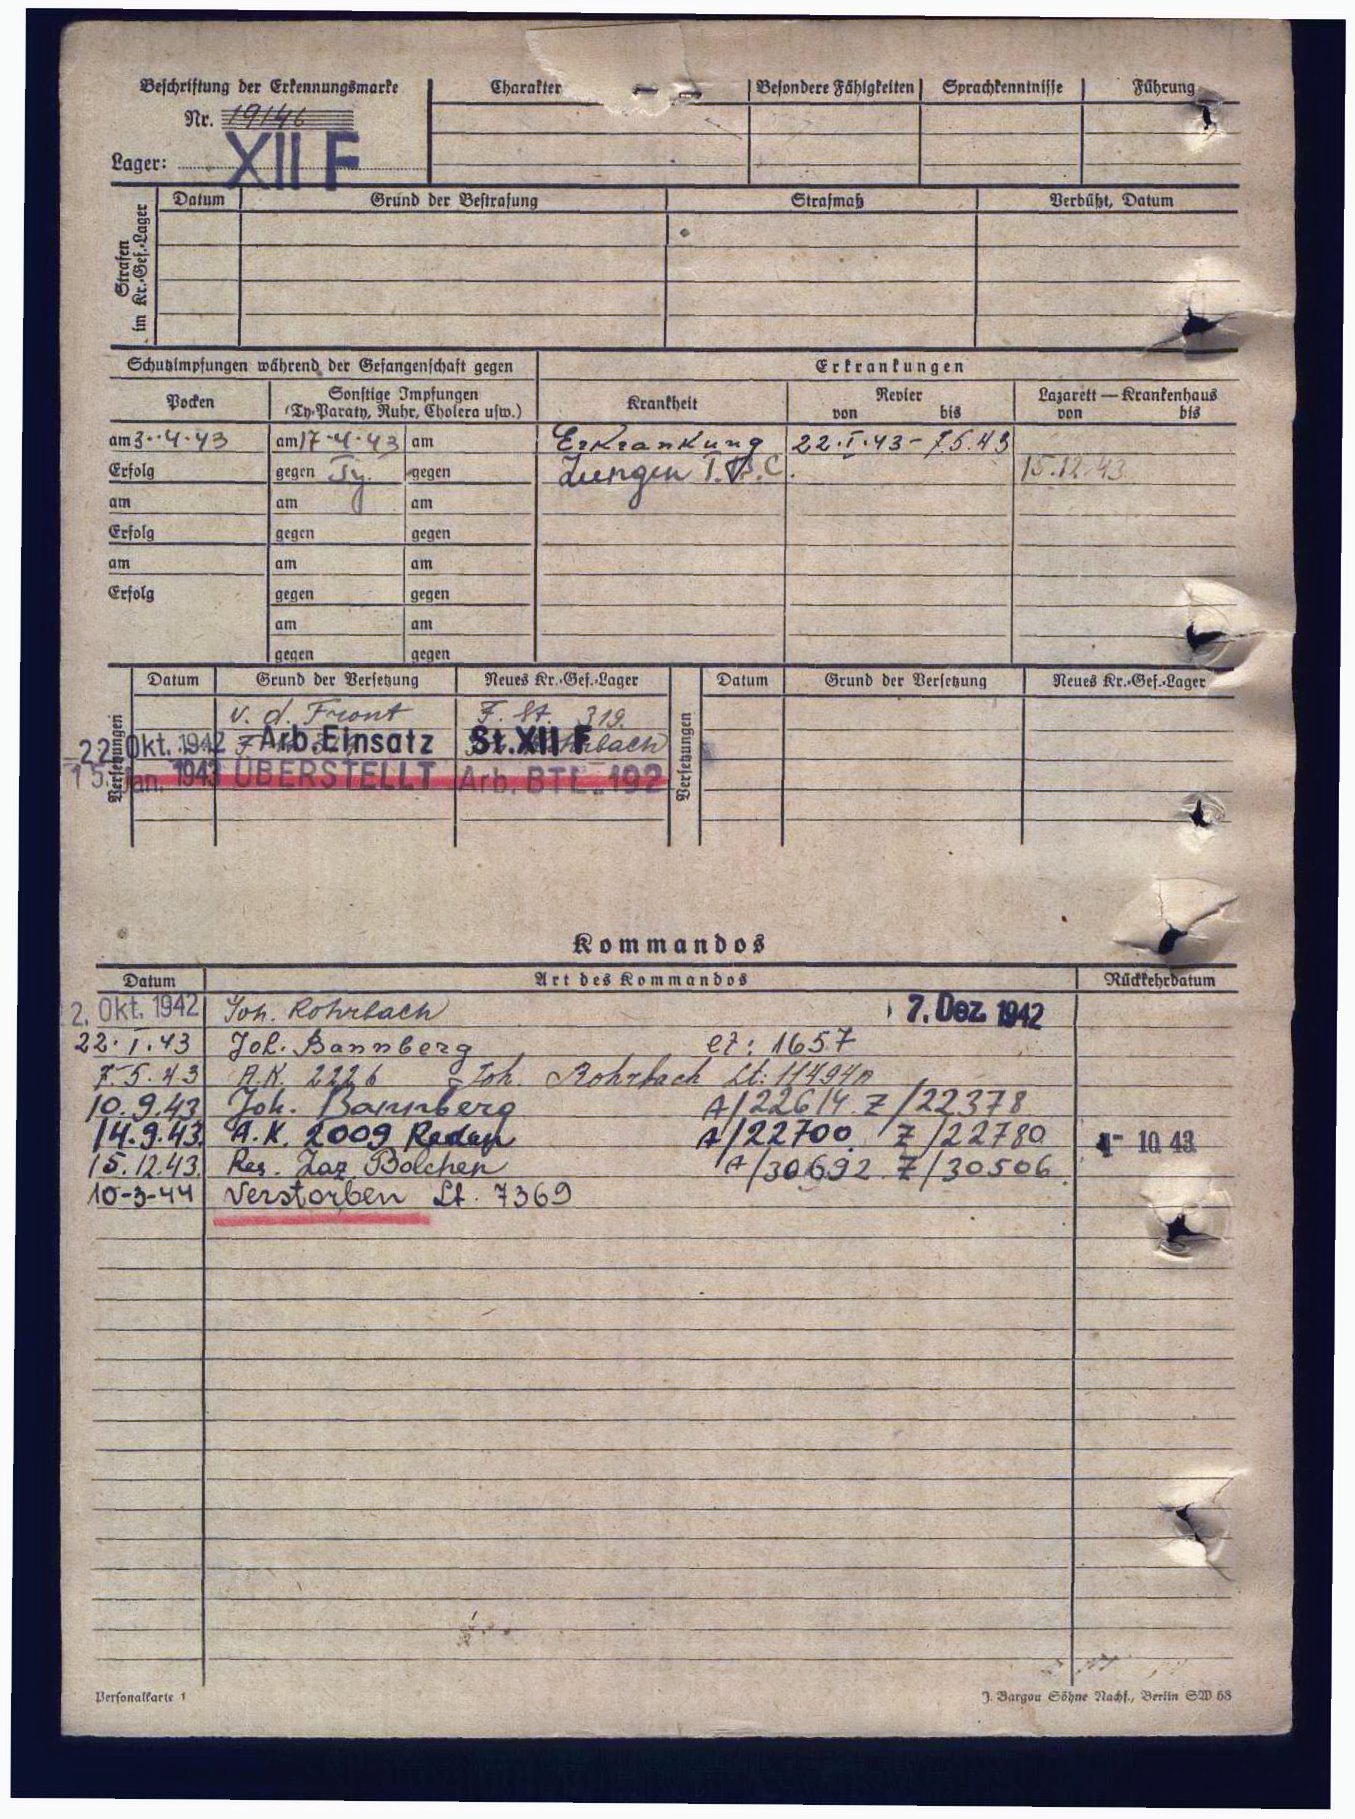 Beschriftung der Erkennungsmarke
Nr. 19146
Lager: XII F
Charakter
Besondere Fähigkeiten
Sprachkenntnisse
Führung
Strafen im Kr.-Gef.-Lager
Datum
Grund der Bestrafung
Strafmaß
Verbüßt, Datum
Schutzimpfungen während der Gefangenschaft gegen
Erkrankungen
Pocken
Sonstige Impfungen
(Ty-Paraty, Ruhr, Cholera usw.)
Krankheit
Revier
von bis
Lazarett — Krankenhaus
von bis
am 3.-4-43 am 17-4-43 am Erkrankung 22.I.43 - 7.5.43
Erfolg gegen Ty. gegen Lungen T.B.C. 15.12.43
am am am
Erfolg gegen gegen
am am am
Erfolg gegen gegen
am am
gegen gegen
Versetzungen
Datum Grund der Versetzung Neues Kr.-Gef.-Lager
v. d. Front F. St. 319.
22. Okt. 1942 Arb. Einsatz St. XII F
15. Jan. 1943 ÜBERSTELLT Arb. BTL. 192
Versetzungen
Datum Grund der Versetzung Neues Kr.-Gef.-Lager
Kommandos
Datum Art des Kommandos Rückkehrdatum
2. Okt. 1942 Joh. Rohrbach 7. Dez. 1942
22.I.43 Joh. Bannberg Lt: 1657
7.5.43 A.K. 2226 Joh. Rohrbach Lt:
10.9.43 Joh. Bannberg A/22614 Z/22378
14.9.43. A.K. 2009 Reden A/22700 Z/22780 4- 10. 43.
15.12.43. Res. Laz Bolchen A/30692 Z/30506.
10-3-44 verstorben Lt. 7369
Personalkarte 1
J. Bargou Söhne Nachf., Berlin SW 68